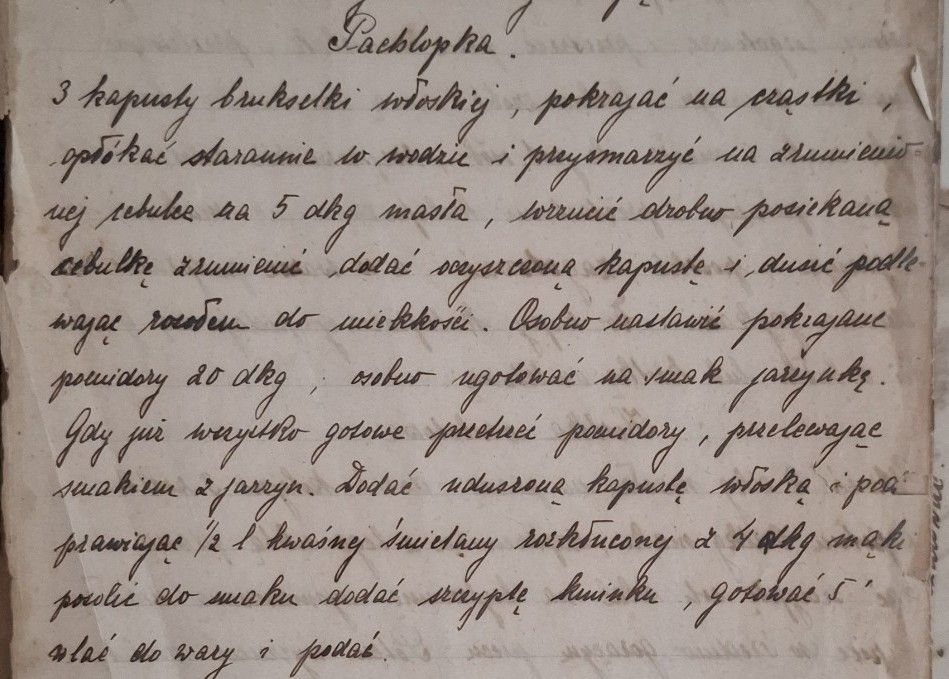 Pachlopka.
3 kapusty brukselki włoskiej, pokrajać na cząstki,
opłókać starannie w wodzie i przysmarzyć na zrumienio-
nej cebulce na 5 dkg masła, wrzucić drobno posiekaną
cebulkę zrumienić dodać oczyszczoną kapustę i dusić podle-
wając rosołem do miękkości. Osobno nastawić pokrajane
pomidory 20 dkg, osobno ugotować na smak jarzynkę.
Gdy już wszystko gotowe przetrzeć pomidory, przelewając
smakiem z jarzyn. Dodać uduszoną kapustę włoską i pod
prawiając 1/2 l kwaśnej śmietany rozkłuconej z 4 dkg mąki
posolić do smaku dodać szczyptę kminku, gotować 5'
wlać do wazy i podać.